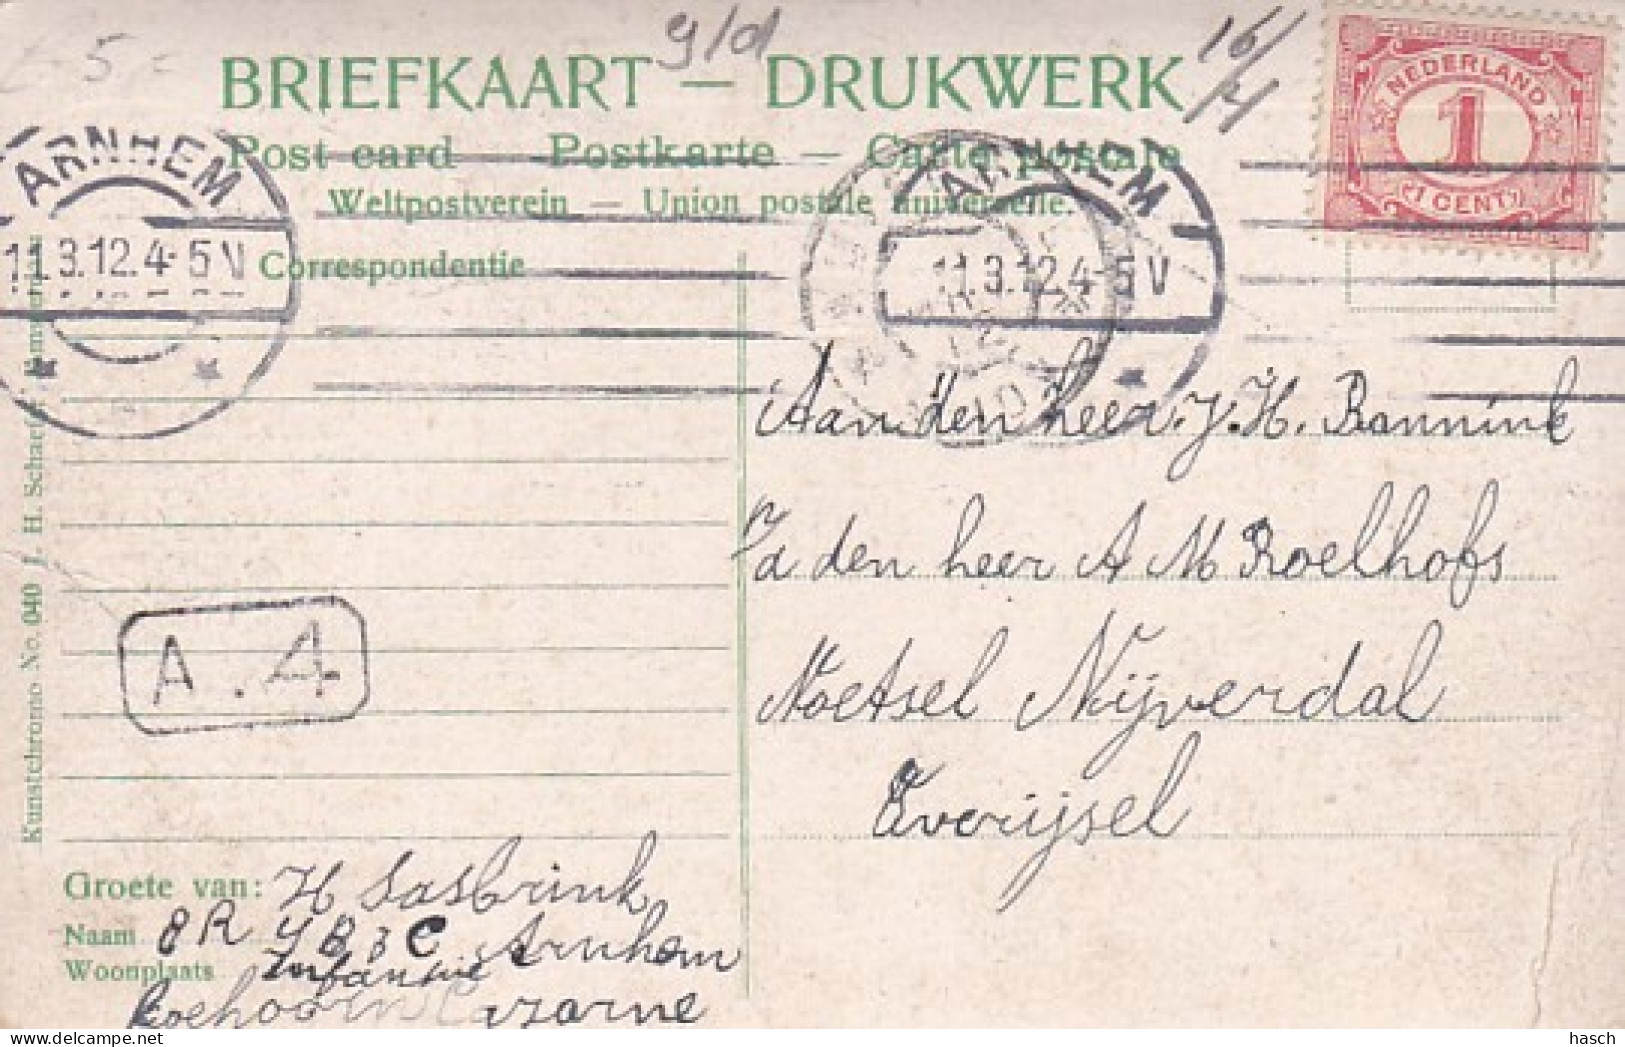 5 -
g/d
16/4
BRIEFKAART — DRUKWERK
Post card — Postkarte — Carte postale
Weltpostverein — Union postale universelle.
Correspondentie
NEDERLAND
1
1 CENT
ARNHEM
11.3.12.4-5V
ARNHEM
11.3.12.4-5V
Aan den heer J. H. Bannink
p/a den heer A M Roelhofs
Noetsel Nijverdal
Overijsel
A.4
Kunstchromo No. 040 J. H. Schaefer, Amsterdam
Groete van: H Sasbrink
Naam 8 R 4 B 3 C Arnhem
Woonplaats Infanterie
Coehoorn Cazarne
hasch